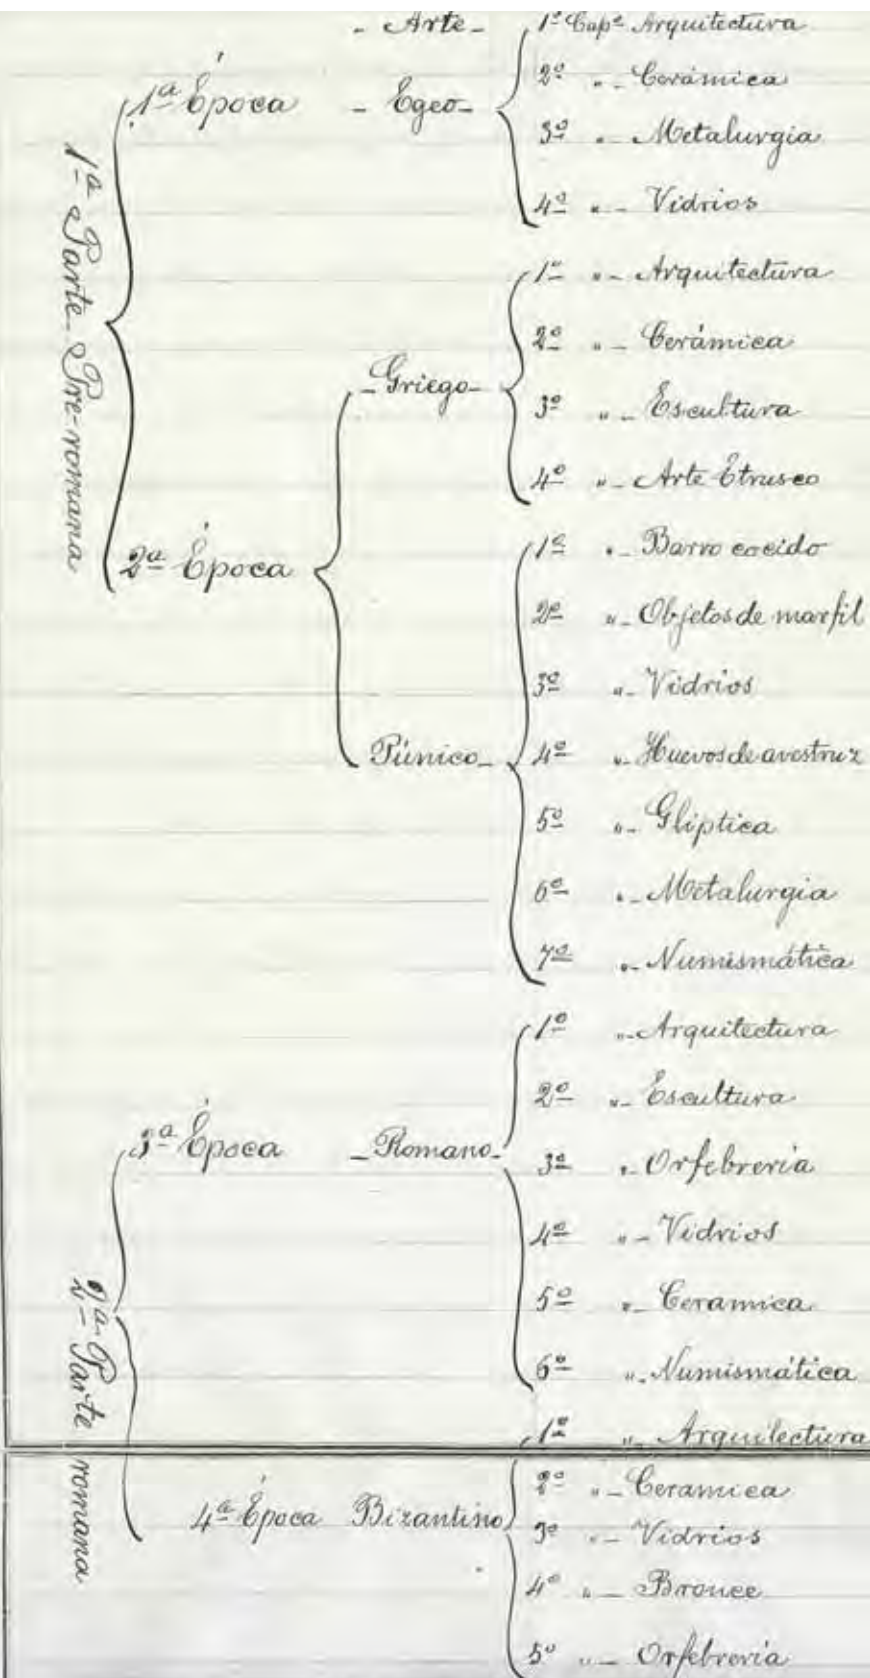 - Arte -
1º Capº Arquitectura
1ª Parte Pre-romana
1ª Época - Egeo -
2º " - Cerámica
3º " - Metalurgia
4º " - Vidrios
2ª Época
- Griego -
1º " - Arquitectura
2º " - Cerámica
3º " - Escultura
4º " - Arte Etrusco
Púnico -
1º " - Barro cocido
2º " - Objetos de marfil
3º " - Vidrios
4º " - Huevos de avestruz
5º " - Glíptica
6º " - Metalurgia
7º " - Numismática
2ª Parte romana
3ª Época - Romano -
1º " - Arquitectura
2º " - Escultura
3º " - Orfebrería
4º " - Vidrios
5º " - Ceramica
6º " - Numismática
4ª Época Bizantino
1º " - Arquitectura
2º " - Ceramica
3º " - Vidrios
4º " - Bronce
5º " - Orfebrería